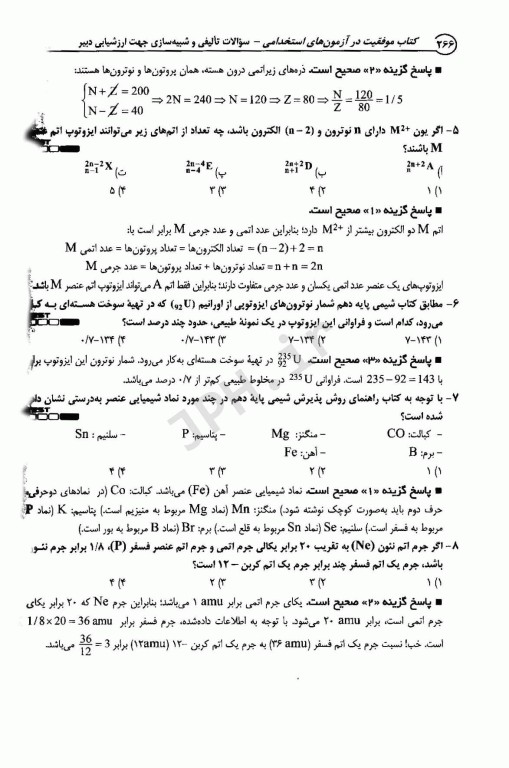 ۲۶۶ کتاب موفقیت در آزمون‌های استخدامی - سؤالات تألیفی و شبیه‌سازی جهت ارزشیابی دبیر
■ پاسخ گزینه «۲» صحیح است. ذره‌های زیراتمی درون هسته، همان پروتون‌ها و نوترون‌ها هستند:
{N + Z = 200
N − Z = 40 ⇒ 2N = 240 ⇒ N = 120 ⇒ Z = 80 ⇒ N/Z = 120/80 = 1/5
۵- اگر یون M²⁺ دارای n نوترون و (n − 2) الکترون باشد، چه تعداد از اتم‌های زیر می‌توانند ایزوتوپ اتم
M باشند؟
آ) ²ⁿ⁺²ₙA ب) ²ⁿ⁺²ₙ₊₁D پ) ²ⁿ⁻⁴ₙ₋₄E ت) ²ⁿ⁻²ₙ₋₁X
۱) ۱ ۲) ۲ ۳) ۳ ۴) ۵
■ پاسخ گزینه «۱» صحیح است.
اتم M دو الکترون بیشتر از M²⁺ دارد؛ بنابراین عدد اتمی و عدد جرمی M برابر است با:
M عدد اتمی = تعداد پروتون‌ها = تعداد الکترون‌ها = (n − 2) + 2 = n
M عدد جرمی = تعداد پروتون‌ها + تعداد نوترون‌ها = n + n = 2n
ایزوتوپ‌های یک عنصر عدد اتمی یکسان و عدد جرمی متفاوت دارند؛ بنابراین فقط اتم A می‌تواند ایزوتوپ اتم عنصر M باشد.
۶- مطابق کتاب شیمی پایه دهم شمار نوترون‌های ایزوتوپی از اورانیم (₉₂U) که در تهیه سوخت هسته‌ای به
می‌رود، کدام است و فراوانی این ایزوتوپ در یک نمونهٔ طبیعی، حدود چند درصد است؟
۱) ۷-۱۴۳ ۲) ۷-۱۳۴ ۳) ۰/۷-۱۴۳ ۴) ۰/۷-۱۳۴
■ پاسخ گزینه «۳» صحیح است. ²³⁵₉₂U در تهیهٔ سوخت هسته‌ای به‌کار می‌رود. شمار نوترون این ایزوتوپ
با 235 − 92 = 143 است. فراوانی ²³⁵U در مخلوط طبیعی کم‌تر از ۰/۷ درصد می‌باشد.
۷- با توجه به کتاب راهنمای روش پذیرش شیمی پایهٔ دهم در چند مورد نماد شیمیایی عنصر به‌درستی نشان
شده است؟
- کبالت: CO - منگنز: Mg - پتاسیم: P - سلنیم: Sn
- برم: B - آهن: Fe
۱) ۱ ۲) ۲ ۳) ۳ ۴) ۴
■ پاسخ گزینه «۱» صحیح است. نماد شیمیایی عنصر آهن (Fe) می‌باشد. کبالت: Co (در نمادهای دوحرفی،
حرف دوم باید به‌صورت کوچک نوشته شود.) منگنز: Mn (نماد Mg مربوط به منیزیم است.) پتاسیم: K (نماد P
مربوط به فسفر است.) سلنیم: Se (نماد Sn مربوط به قلع است.) برم: Br (نماد B مربوط به بور است.)
۸- اگر جرم اتم نئون (Ne) به تقریب ۲۰ برابر یکای جرم اتمی و جرم اتم عنصر فسفر (P)، ۱/۸ برابر جرم نئون
باشد، جرم یک اتم فسفر چند برابر جرم یک اتم کربن - ۱۲ است؟
۱) ۱ ۲) ۳ ۳) ۲ ۴) ۴
■ پاسخ گزینه «۲» صحیح است. یکای جرم اتمی برابر ۱ amu می‌باشد؛ بنابراین جرم Ne که ۲۰ برابر یکای
جرم اتمی است، برابر ۲۰ amu می‌شود. با توجه به اطلاعات داده‌شده، جرم فسفر برابر 1/8×20 = 36 amu
است. خب! نسبت جرم یک اتم فسفر (۳۶ amu) به جرم یک اتم کربن -۱۲ (۱۲amu) برابر 36/12 = 3 می‌باشد.